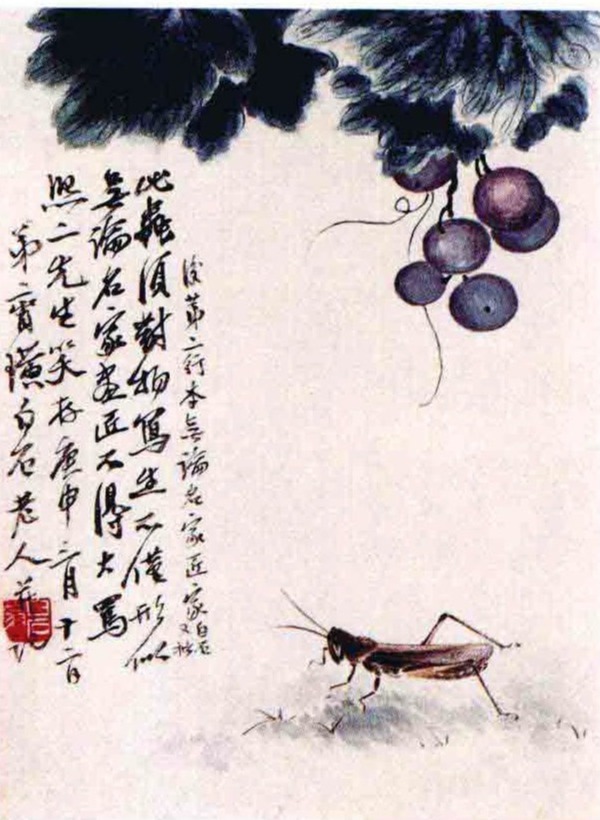 後第二行本無論名家匠家白石又批
此蟲須對物寫生不僅形似
無論名家畫匠不得大罵
熙二先生笑存庚申三月十二日
第二宵璜白石老人并記